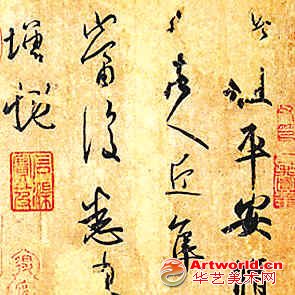 此粗平安脩
日諸人近集
當復悉
增慨
Artworld.cn
华艺美术网